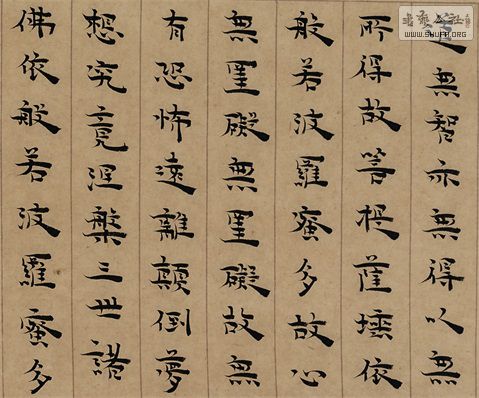 道無智亦無得以無
所得故菩提薩埵依
般若波羅蜜多故心
無罣礙無罣礙故無
有恐怖遠離顛倒夢
想究竟涅槃三世諸
佛依般若波羅蜜多
www.SHUFA.ORG